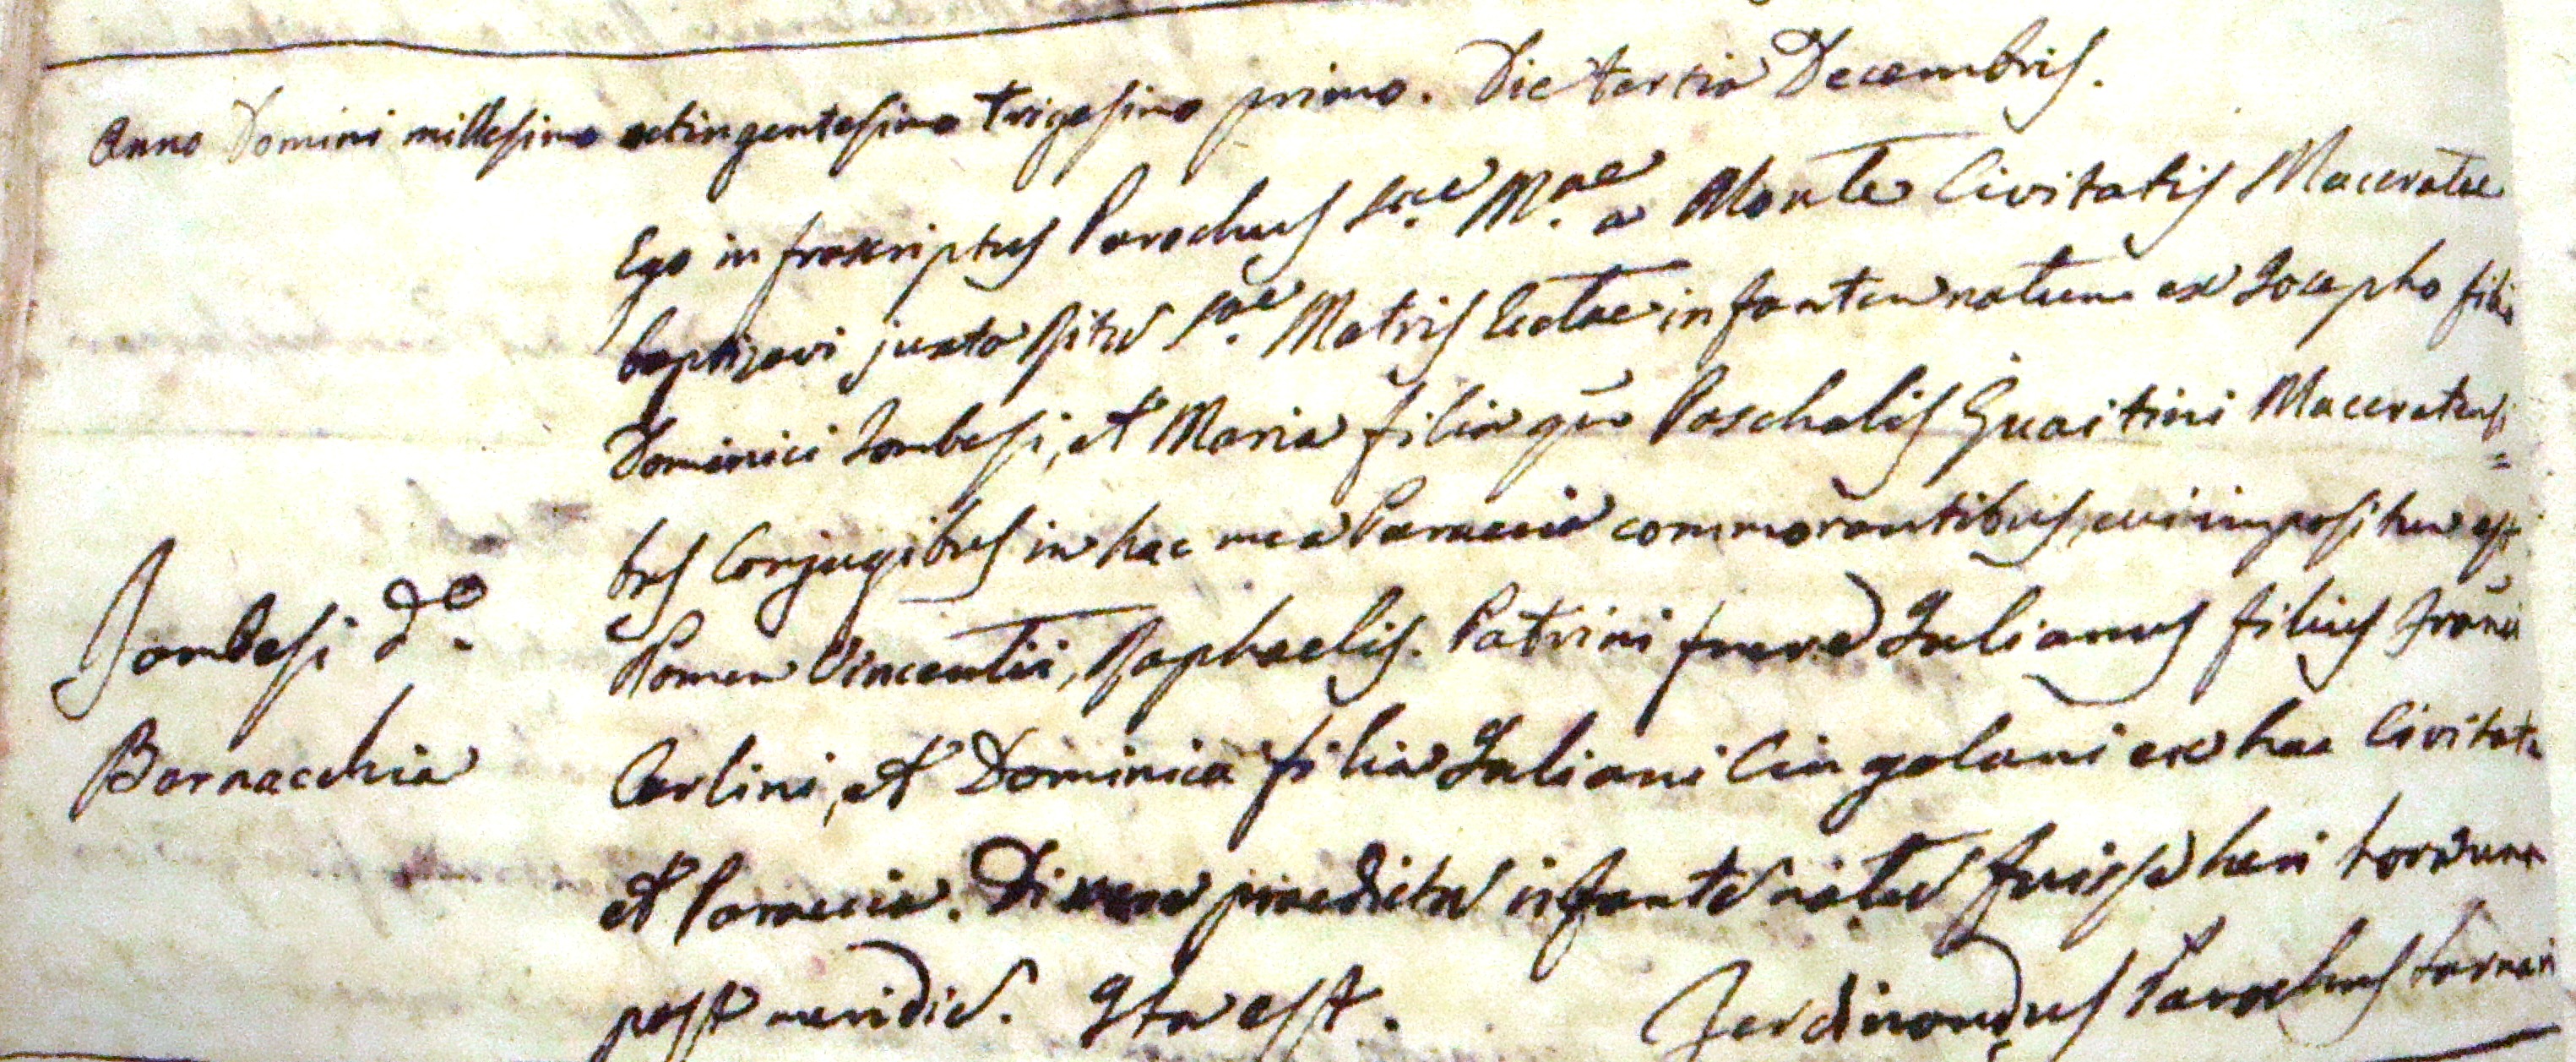 Anno Domini millesimo octingentesimo trigesimo primo. Die tertia Decembris.
Ego infrascriptus Parochus S.ae M.ae a Monte Civitatis Maceratae
baptizavi juxta Ritū S.ae Matris Ecclae infantem natum ex Josepho filio
Dominici Jombesi, et Maria filia qm̄ Paschalis Guaitini Maceratensi=
bus Conjugibus in hac mea Paraecia commorantibus, cui impositum est
Nomen Vincentii, Raphaelis. Patrini fuere Julianus filius
Jombesi d.o
Carlini, et Dominica filia Juliani Cingolani ex hac Civitate
Bornacchia
et Paraecia. praedictū infantē natū fuisse heri hora una
post meridiē. Ita est. Ferdinandus Parochus